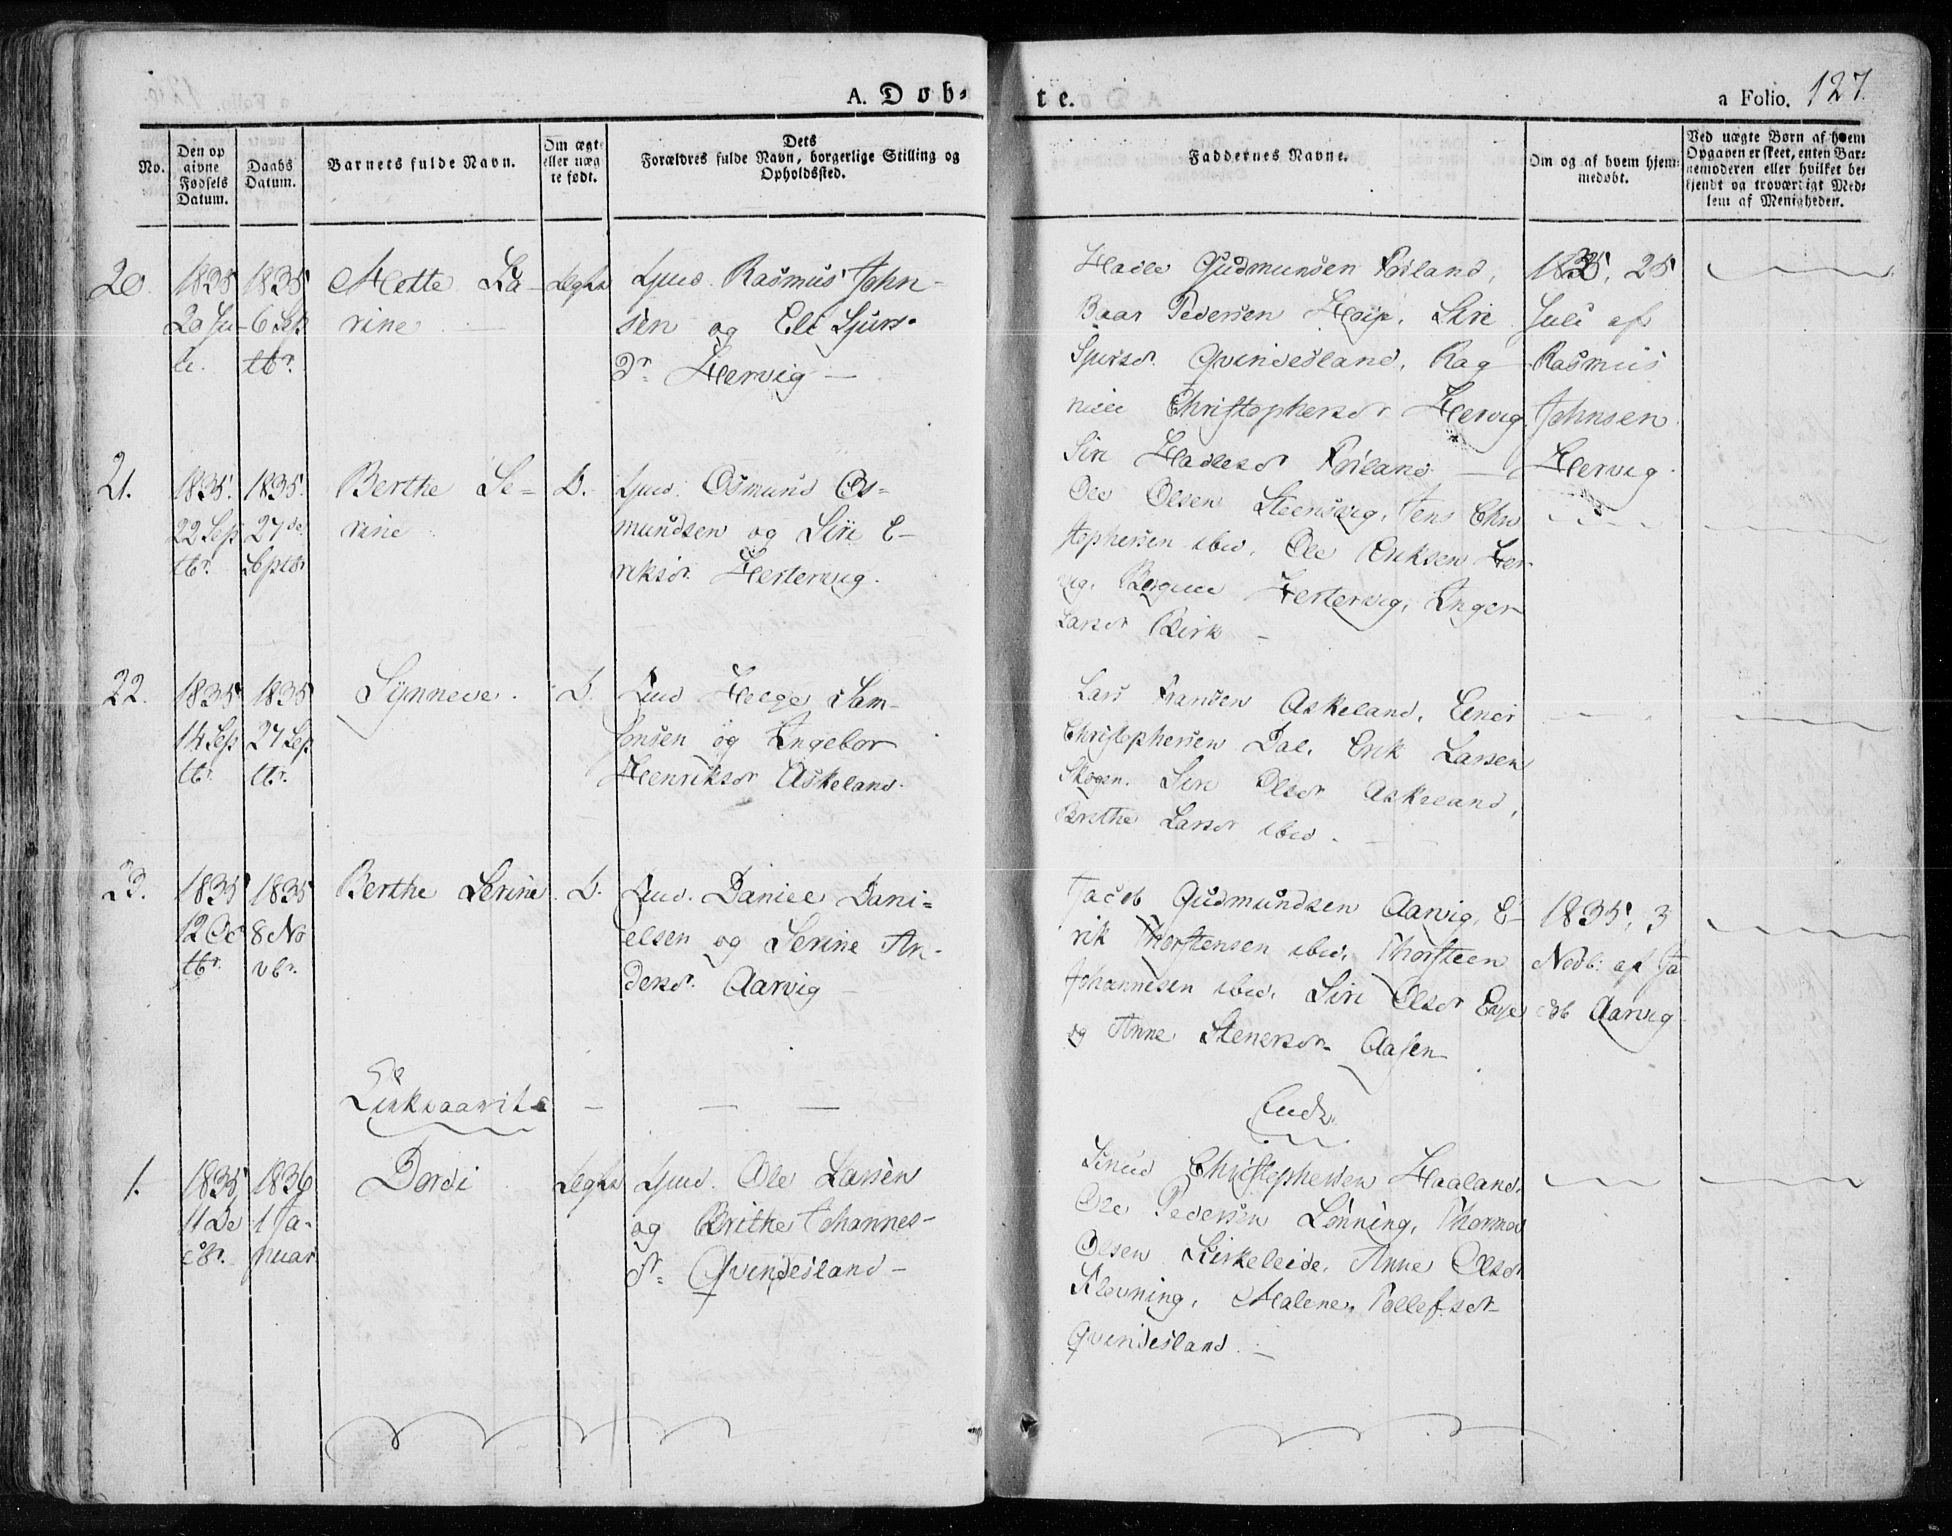 A. Døbte.
a Folio. 127.
No.
Den opgivne Fødsels Datum.
Daabs Datum.
Barnets fulde Navn.
Om ægte eller uægte født.
Dets Forældres fulde Navn, borgerlige Stilling og Opholdssted.
Faddernes Navne.
Om og af hvem hjemmedøbt.
Ved uægte Børn af hvem Opgaven er skeet, enten Barnemoderen eller hvilket bekjendt og troværdigt Medlem af Menigheden.
20.
1835
20 Ju-
li.
1835
6 Sep
tbr.
Mette La-
rine
Ægte
Gmd. Rasmus John-
sen og Eli Sjurs-
dr. Hervig
Gudmundsen
Baar Pedersen Siri
Sjursdr. Qvindesland, Rag
Christophersdr. Hervig
Siri
1835, 25
Juli af
Rasmus
Johnsen
Hervig.
21.
1835.
22 Sep
tbr.
1835.
27de
Septbr
Berthe Se-
rine
D.
Gmd. Osmund Os-
mundsen og Siri E-
riksdr. Hestervig.
Ole Olsen Steensvig, Jens Chri
stophersen ibid, Ole Eriksen Her
vig, Hestervig, Inger
Larsdr Birk
22.
1835
14 Sep
tbr.
1835
27 Sep
tbr.
Synneve.
D.
Gmd Helge Sam-
sonsen og Ingebor
Henriksdr Askeland.
Lars Askeland, Einer
Christophersen Dal, Erik Larsen
Siri Olsdr Askeland,
Brithe Larsdr ibid.
23.
1835
12 Oc
tbr.
1835
8 No
vbr.
Berthe Serine
D.
Gmd. Daniel Dani-
elsen og Serine An-
dersdr. Aarvig
Jacob Gudmundsen Aarvig, E-
rik Thorstensen ibid, Thorsteen
Johannesen ibid, Siri Olsdr Eye
og Anne Stenersdr Aasen
1835, 3
Novb. af Ja
cob Aarvig
1.
1835,
11 De
cbr.
1836
1 Ja-
nuar
Dordi
Ægte
Gmd. Ole Larsen
og Brithe Johannes-
dr. Qvindesland
Knud Christophersen Haaland,
Ole Pedersen Lønning, Thormod
Olsen Kirkeleide, Anne Olsdr
Klovning, Malene Tollefsdr
Qvindesland.